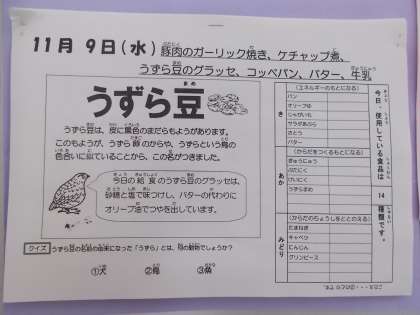 11月 9日(水) 豚肉のガーリック焼き、ケチャップ煮、
うずら豆のグラッセ、コッペパン、バター、牛乳
うずら豆
うずら豆は、皮に黒色のまだらもようがあります。
このもようが、うずら卵のからや、うずらという鳥の
色合いに似ていることから、この名がつきました。
今日の給食のうずら豆のグラッセは、
砂糖と塩で味つけし、バターの代わりに
オリーブ油でつやを出しています。
クイズ うずら豆の名前の由来になった「うずら」とは、何の動物でしょうか？
①犬 ②鳥 ③魚
今日、使用している食品は 14 種類です。
き
(エネルギーのもとになる)
パン
オリーブゆ
じゃがいも
サラダあぶら
さとう
バター
あか
(からだをつくるもとになる)
ぎゅうにゅう
ぶたにく
けいにく
うずらまめ
みどり
(からだのちょうしをととのえる)
たまねぎ
キャベツ
にんじん
グリンピース